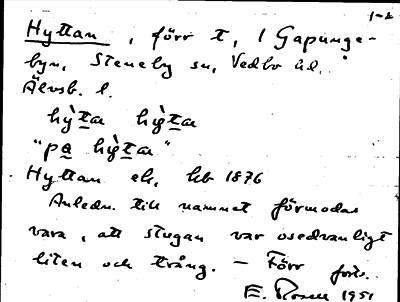 1-2
Hyttan, förr t, i Gapunge-
byn, Steneby sn, Vedbo hd.
Älvsb. l.
hỳta hỳta
"pa hỳta"
Hyttan ek, kb 1876
Anledn. till namnet förmodas
vara, att stugan var osedvanligt
liten och trång. — Förr forts.
E. Rosell 1951